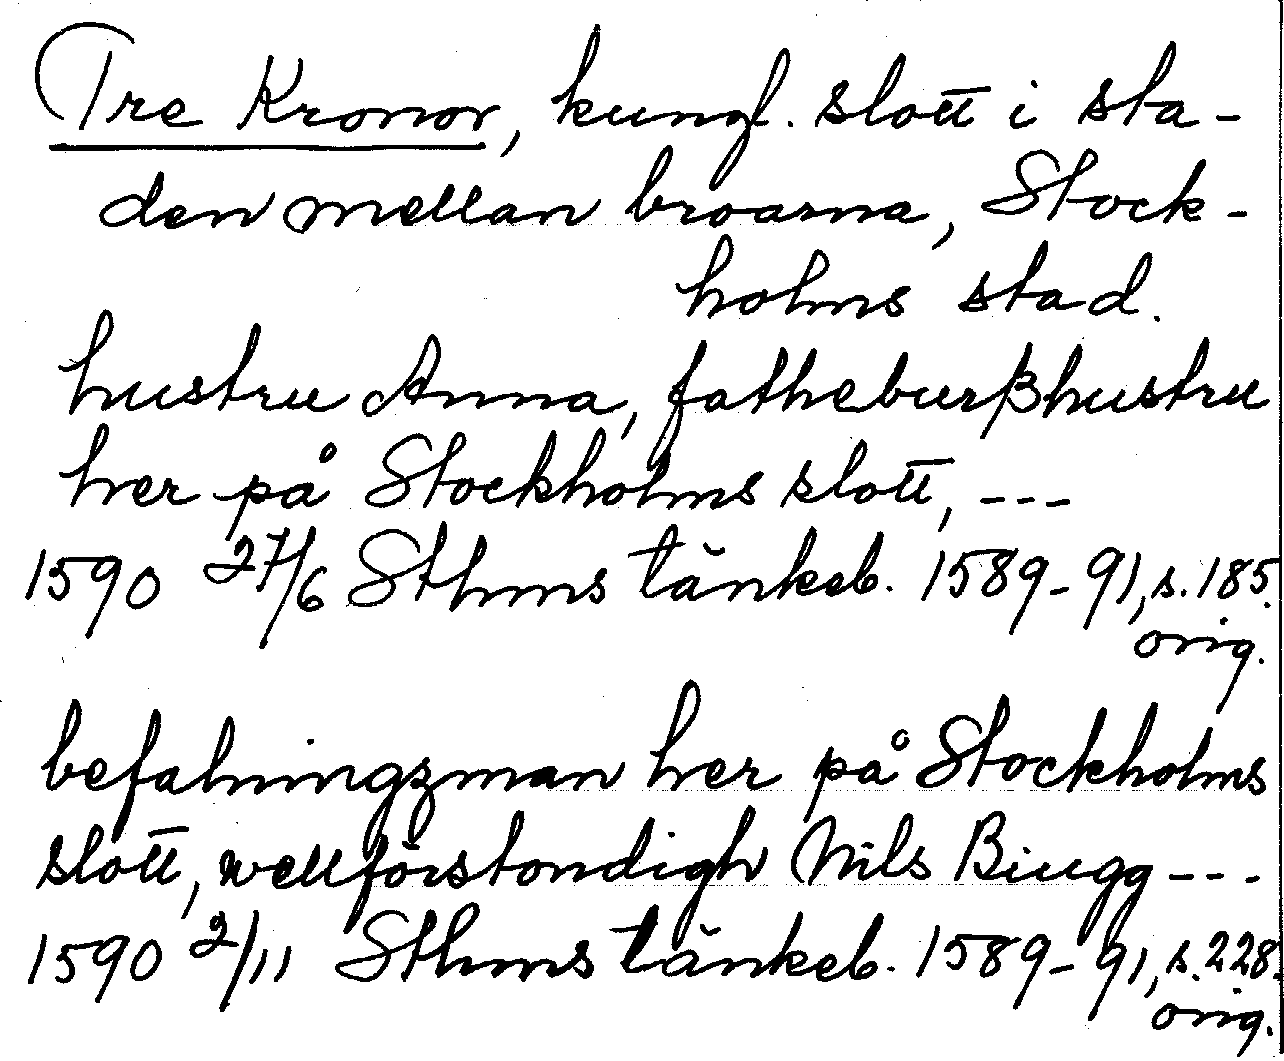 Tre Kronor, kungl. slott i sta-
den mellan broarna, Stock-
holms stad.
hustru Anna, fatheburßhustru
her på Stockholms slott, ---
1590 27/6 Sthms tänkeb. 1589-91, s. 185.
orig.
befalningzman her på Stockholms
slott, wellförstondigh Nils Biugg ---
1590 2/11 Sthms tänkeb. 1589-91, s. 228.
orig.